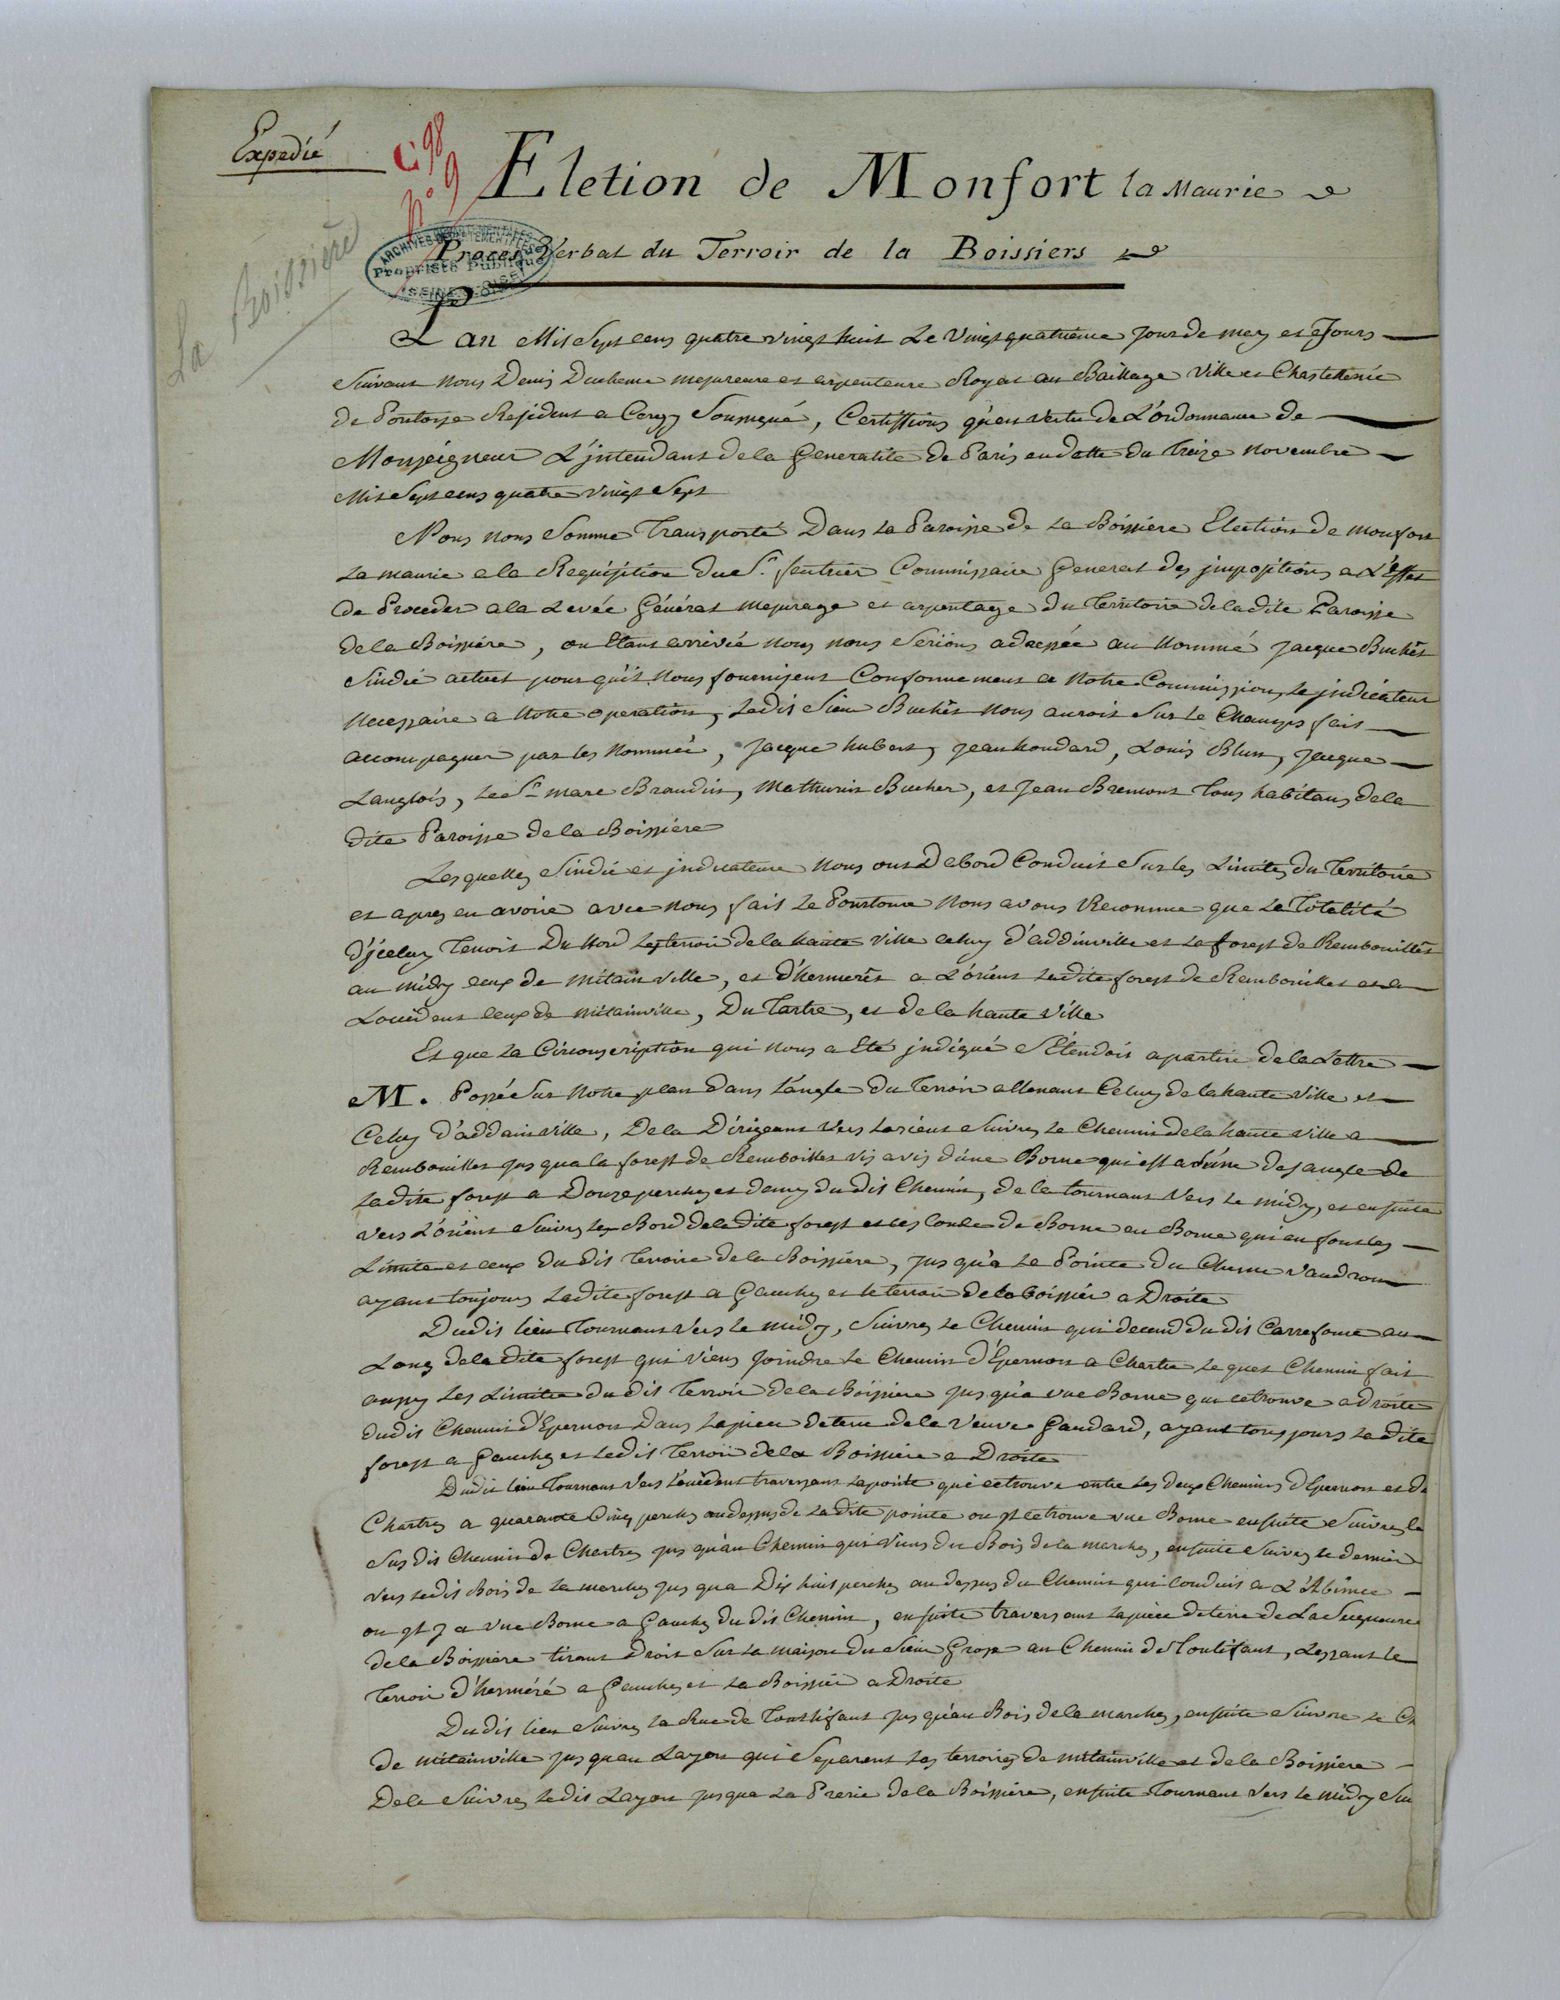 Expedié
C 98
n° 9
La Boissière
Eletion de Monfort la Maurie
Proces Verbal du Terroir de la Boissiers
ARCHIVES DEPARTEMENTALES
Propriété Publique
SEINE-ET-OISE
Lan Mil Sept cens quatre vingt huit Le Vingt quatrieme Jour de mey et Jours
Suivant nous Denis Duchene mesureure et arpenteure Royal au Baillage Ville et Chastellenie
de Pontoise Resident a Cergy Sousigné, Certiffions qu'en vertu de L'ordonnance de
Monseigneur L'jntendant de la Generalité de Paris en datte du Treize novembre
Mil Sept cens quatre vingt Sept
Nous nous Somme Transporté Dans la Paroisse de la Boissiere Election de monfort
La maurie a la Requisition du Sr. Commissaire General des jmpositions a L'effet
de Proceder a la Levée Général mesurage et arpentage du Territoire de la dite Paroisse
de la Boissiere, ou Etant arrivié nous nous Serions adressée au Nommé Jacque Buchés
Sindic actuel pour qu'il nous fournisent Conformement a Notre Commission, le jndicateur
necessaire a Notre operation, Ledit Sieu Buchés nous auroit Sur le Champs fait
accompagner par les Nommée, Jacque hubert, Jean houdard, Louis Blun, Jacque
Langlois, Le Sr. marc Braudin, Mathurin Bucher, et Jean Bremont tous habitans de la
dite Paroisse de la Boissiere
Lesquelles Sindic et jndicateure nous ont Debord Conduit Sur les Limites du Territoire
et apres en avoire avec nous fait le Pourtoure nous avons Reconnue que la Totalité
D'jceluy Tenoit Du Nord Le terroir de la haute Ville celuy d'addinville et la forest de Rembouillét
au midy ceux de mitain ville, et d'hermerés a L'orient Ladite forest de Rembouillet et a
Loccident ceux de mitainville, Du Tartre, et de la haute Ville
Et que la Circonscription qui nous a Eté jndiqué S'Etendoit a partire de la Lettre
M. Possée Sur Notre plan dans L'angle du Terroir attenant Celuy de la haute Ville et
Celuy d'addainville, De la Dirigeant Vers Lorient Suivre Le Chemin de la haute Ville a
Rembouillet jus qua la forest de Rembouillet vis avis d'une Borne qui est de Langle de
Ladite forest a Douze perches et demy du dit Chemin, de la tournant Vers le midy, et ensuite
vers L'orient Suivre Le Bord de la dite forest et de Borne en Borne qui en font les
Limite et ceux du dit Terroire de la Boissiere, jus qu'a la Pointe du Chene
ayant toujours Ladite forest a Gauche et le terroir de la boissier a Droite
Dudit lieu Tournant Vers le midy, Suivre le Chemin qui decend du dit Carrefoure au
Long de la dite forest qui vient joindre le Chemin d'Epernon a Chartre le quel Chemin fait
aussy les Limitte du dit Terroir de la Boissiere jus qu'a une Borne qui ce trouve a droite
dudit Chemin d'Epernon Dans La piece de terre de la Veuve Gaudard, ayant toujours Ladite
forest a Gauche et ledit Terroir de la Boissiere a Droite
Dudit lieu Tournant Vers L'occident traversant la pointe qui ce trouve entre les deux Chemins d'Epernon et de
Chartre a quarante Cinq perches au dessus de la dite pointe ou jl ce trouve une Borne ensuite Suivre le
Sus dit Chemin de Chartre jus qu'au Chemin qui Viens du Bois de la marche, ensuite Suivre le dernier
vers ledit Bois de la marche jus qua Dix huit perches au dessus du Chemin qui Conduit a L'Abime
ou jl y a une Borne a Gauche du dit Chemin, ensuite traversant la piece de terre de La Seigneure
de la Boissiere tirant Droit Sur la maison du Sieur Gros au Chemin de Toutifaut, Lessant le
Terroir d'herméré a Gauche et La Boissier a Droite
Du dit lieu Suivre la Rue de Toutifaut jus qu'au Bois de la marche, ensuite Suivre le Ch
de mitainville jusqu'au Layon qui Separent Les terroires de mitainville et de la Boissiere
De la Suivre ledit Layon jusqua La Prerie de la Boissiere, ensuite Tournant Vers le midy Sui